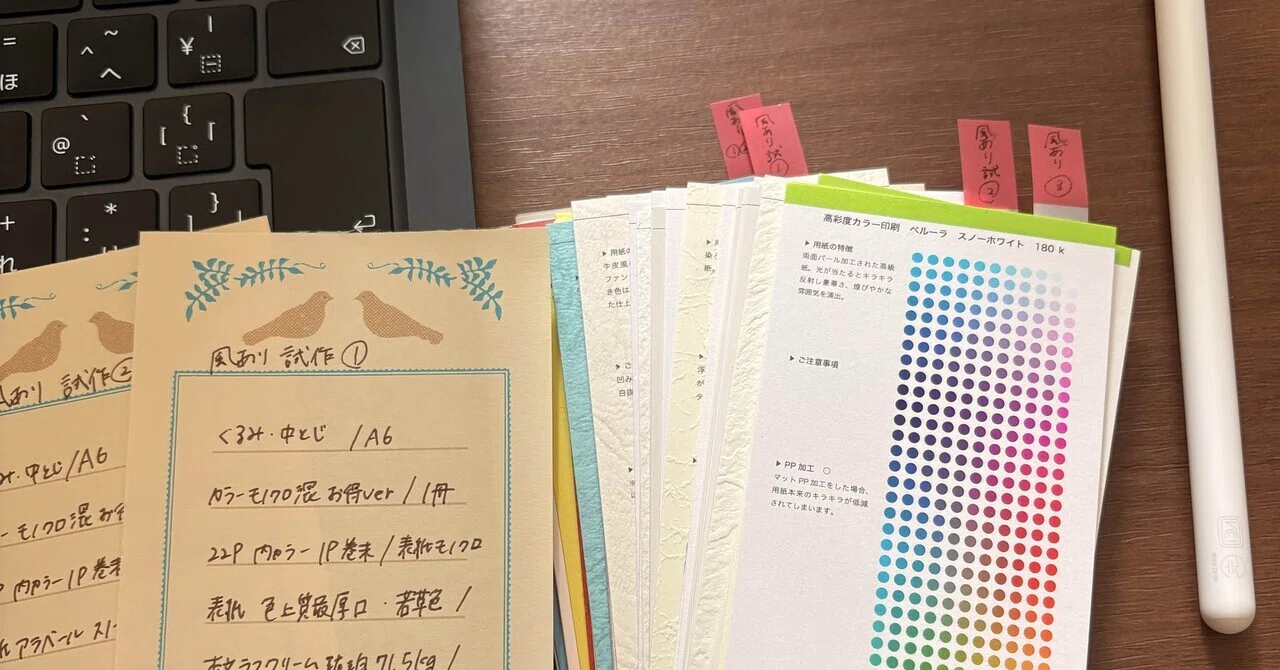 =
ほ
~
^
へ
|
¥
@
`
{
[
「
+
れ
*
:
}
風あり
①
風あり試①
風あり試②
風あり ③
試作②
/A6
モノクロ混 お得
内カラー 1P 巻末
アラベール スノー
風あり 試作①
くるみ・中とじ /A6
カラーモノクロ混 お得ver / 1冊
22P 内カラー 1P 巻末 / 表紙モノクロ
表紙 色上質最厚口・若草色 /
本文ラフクリーム琥珀 71.5kg /
▶ 用紙の
牛皮風
ファン
き色は
た仕上
▶ ご
凹み
白抜
染
紙
浮
が
タ
高彩度カラー印刷 ペルーラ スノーホワイト 180 k
▶ 用紙の特徴
両面パール加工された高級
紙。光が当たるとキラキラ
反射し豪華さ、煌びやかな
雰囲気を演出。
▶ ご注意事項
▶ PP 加工 ○
マット PP 加工をした場合、
用紙本来のキラキラが低減
されてしまいます。